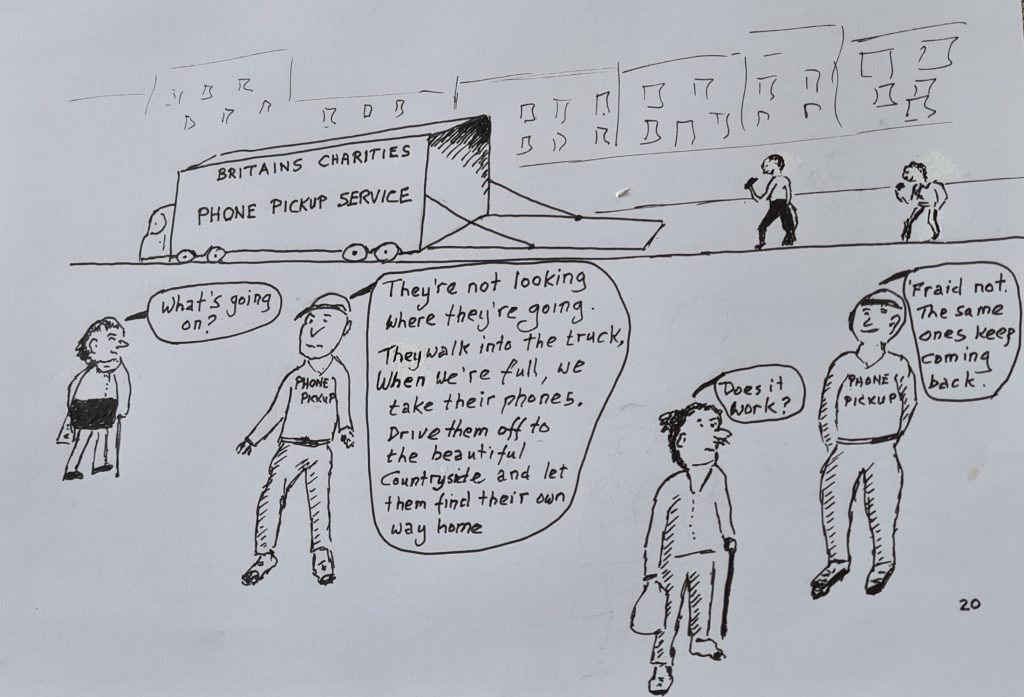 BRITAINS CHARITIES
PHONE PICKUP SERVICE
What's going
on?
They're not looking
where they're going.
They walk into the truck,
When we're full, we
take their phones.
Drive them off to
the beautiful
Countryside and let
them find their own
way home
PHONE
PICKUP
Does it
work?
'Fraid not.
The same
ones keep
coming
back.
PHONE
PICKUP
20